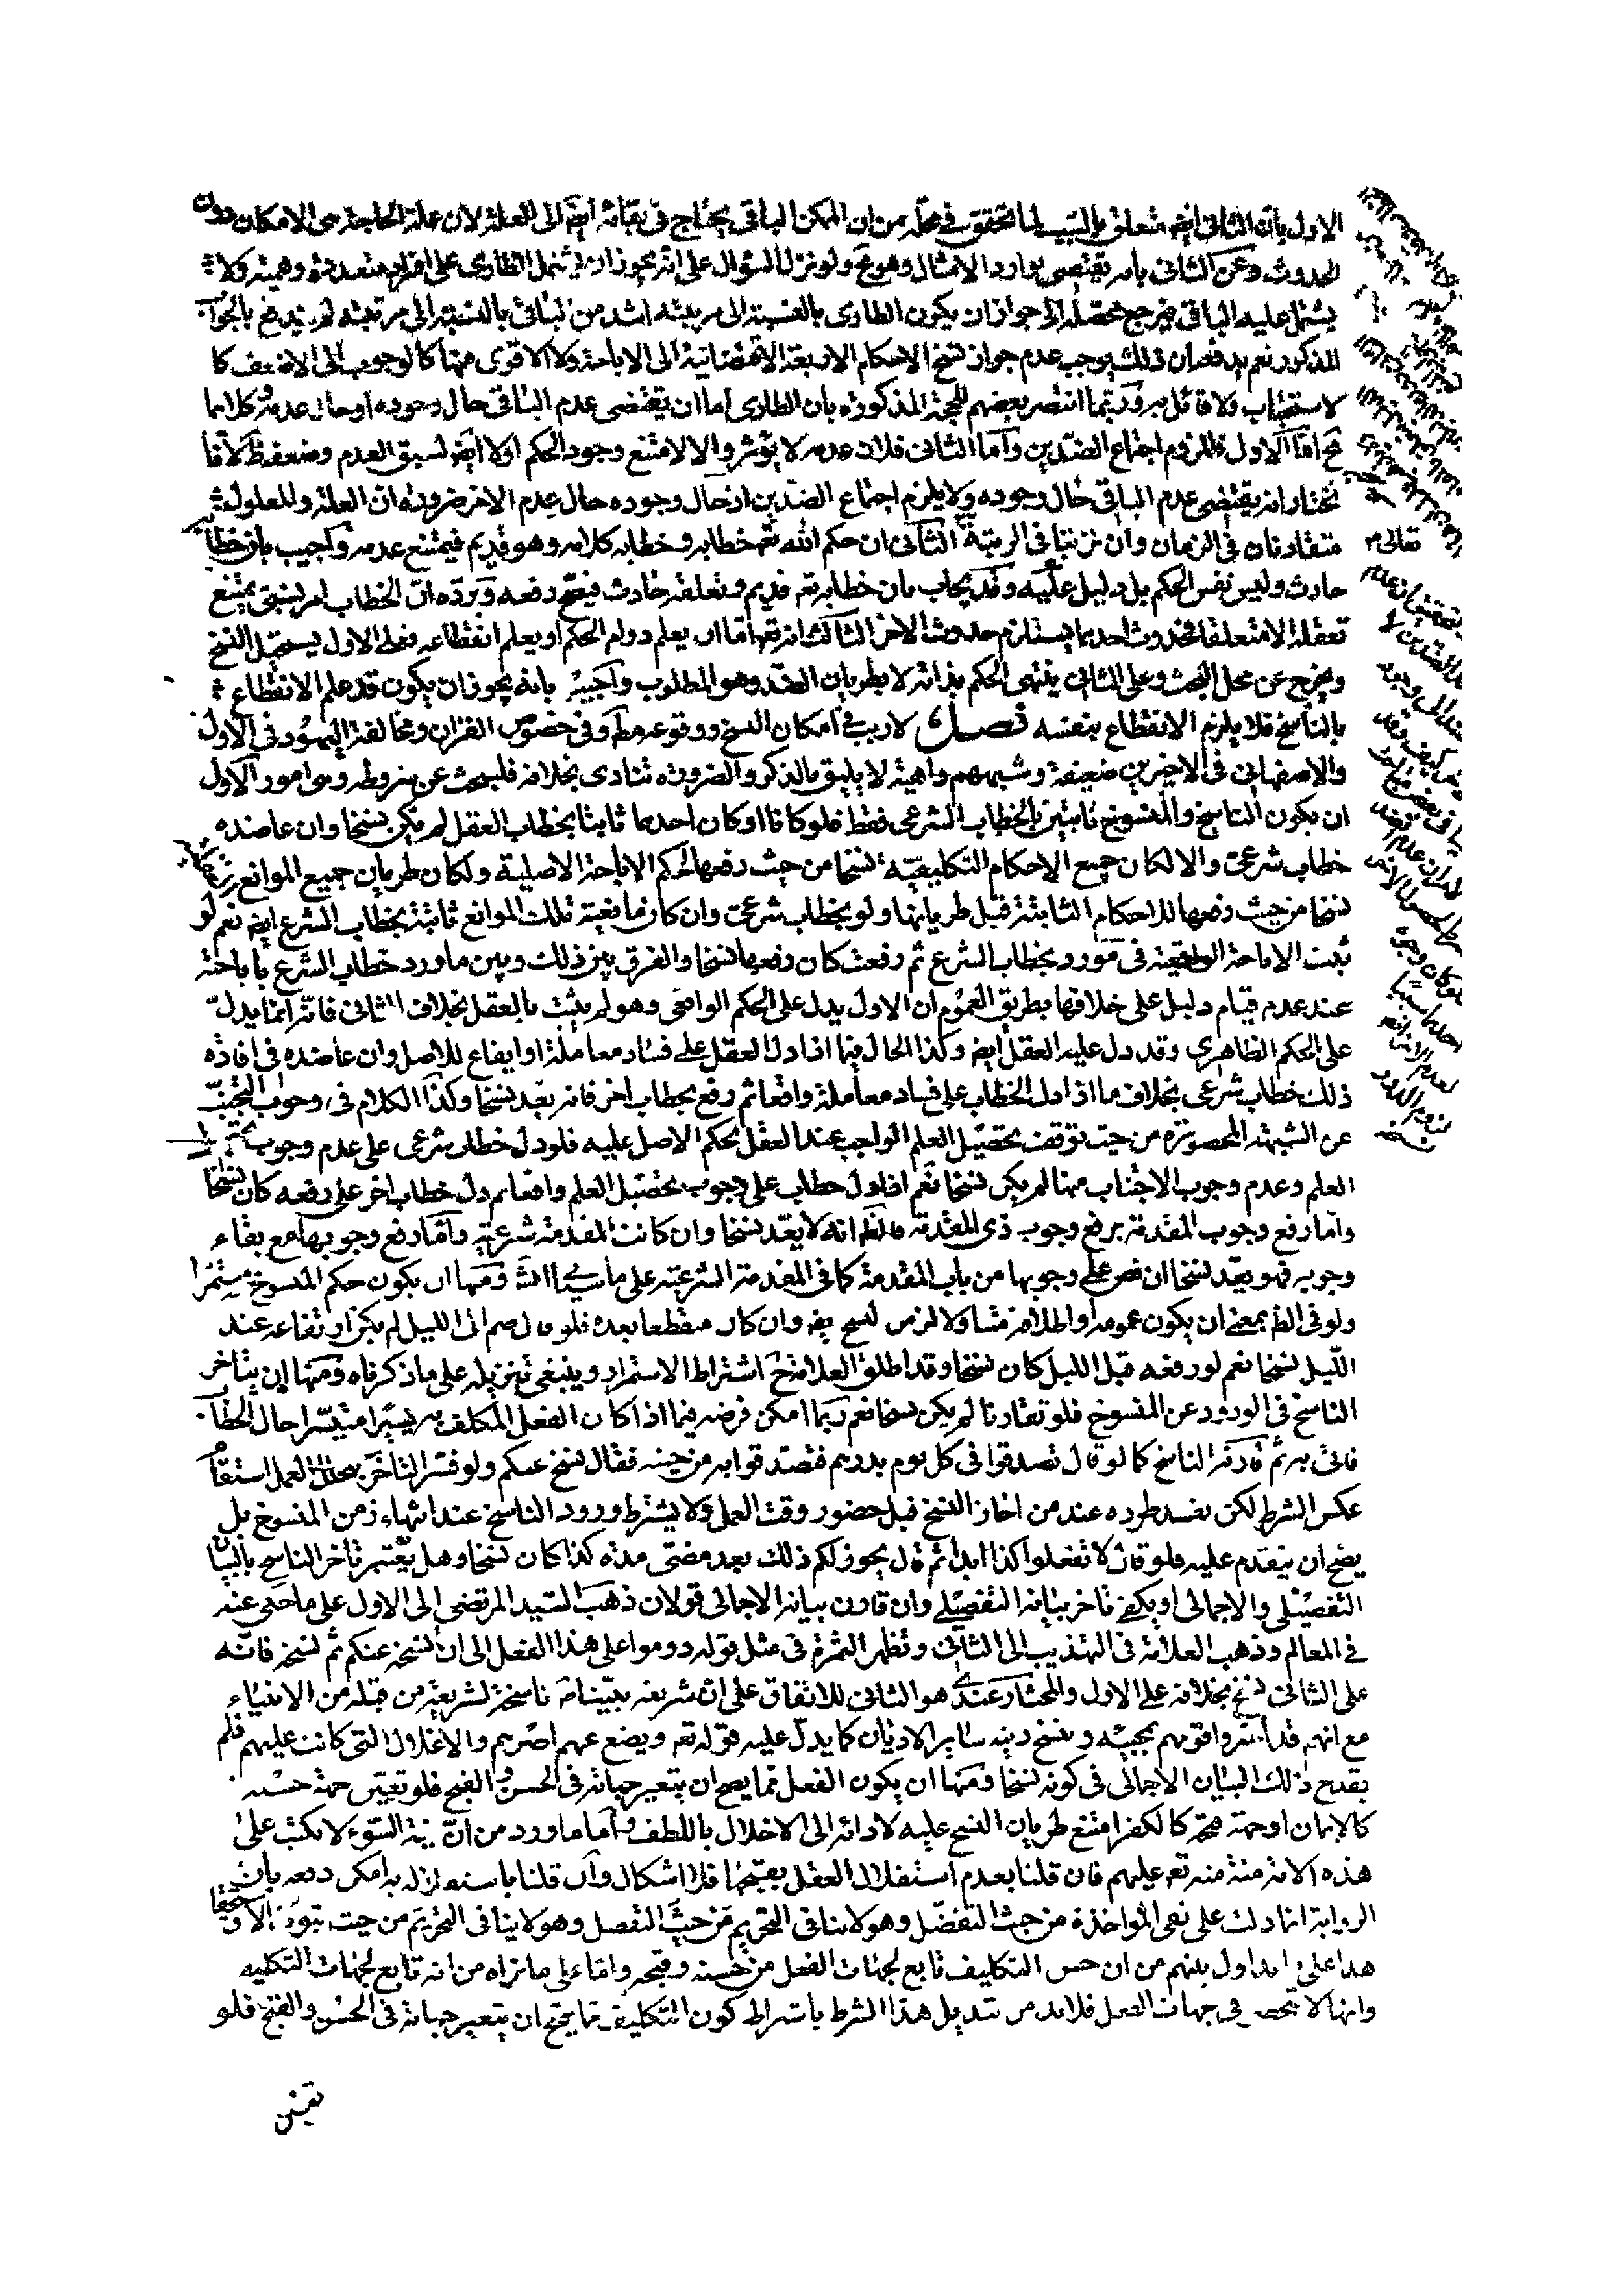 الاول بان الثاني ايضا متعلق بالسبب لما تحقق في محله من ان الممكن الباقي يحتاج في بقائه ايضا الى العلة لان علة الحاجة هي الامكان دون
الحدوث وعن الثاني بانه يقتضي توارد الامثال وهو مح ولو نزل السؤال على انه يجوز ان يشتمل الطاري على افراد متعددة وهمية ولا
يشتمل عليه الباقي فيرجع محصله الى جواز ان يكون الطاري بالنسبة الى مرتبته اشد من الباقي بالنسبة الى مرتبته لم يندفع بالجواب
المذكور نعم يدفعه ان ذلك يوجب عدم جواز نسخ الاحكام الاربعة الاقتضائية الى الاباحة ولا الاقوى منها كالوجوب الى الاضعف كا
لاستحباب ولا قائل به وربما انتصر بعضهم للحجة المذكورة بان الطاري اما ان يقتضي عدم الباقي حال وجوده او حال عدمه وكلاهما
مح اما الاول فللزوم اجتماع الضدين واما الثاني فلان عدمه لا يؤثر والا لامتنع وجود الحكم اولا ايضا لسبق العدم وضعفه ظ لانا
نختار انه يقتضي عدم الباقي حال وجوده ولا يلزم اجتماع الضدين اذ حال وجوده حال عدم الاخر ضرورة ان العلة والمعلول
متقارنان في الزمان وان ترتبا في الرتبة الثاني ان حكم الله تعالى خطابه وخطابه كلامه وهو قديم فيمتنع عدمه واجيب بان خطابه
حادث وليس نفس الحكم بل دليل عليه وقد يجاب بان خطابه تعم قديم وتعلقه حادث فيصح رفعه ويرده ان الخطاب امر نسبي يمتنع
تعقله الا متعلقا فحدوث احدهما يستلزم حدوث الاخر الثالث انه تعم اما ان يعلم دوام الحكم او يعلم انقطاعه فعلى الاول يستحيل النسخ
ويخرج عن محل البحث وعلى الثاني ينتهي الحكم بذاته لا بطريان الضد وهو المطلوب واجيب بانه يجوز ان يكون قد علم الانقطاع
بالناسخ فلا يلزم الانقطاع بنفسه فصل لا ريب في امكان النسخ ووقوعه مطلقا وفي خصوص القران ومخالفة اليهود في الاول
والاصفهاني في الاخيرين ضعيفة وشبههم واهية لا يليق بالذكر والضرورة تنادي بخلافه فلنبحث عن شروطه وهي امور الاول
ان يكون الناسخ والمنسوخ ثابتين بالخطاب الشرعي فقط فلو كانا او كان احدهما ثابتا بخطاب العقل لم يكن نسخا وان عاضده
خطاب شرعي والا لكان جميع الاحكام التكليفية نسخا من حيث رفعها لحكم الاباحة الاصلية ولكان طريان جميع الموانع
نسخا من حيث رفعها للاحكام الثابتة قبل طريانها ولو بخطاب شرعي وان كان مانعية تلك الموانع ثابتة بخطاب الشرع ايضا نعم لو
ثبت الاباحة الواقعية في مورد بخطاب الشرع ثم رفعت كان رفعها نسخا والفرق بين ذلك وبين ما ورد خطاب الشرع باباحته
عند عدم قيام دليل على خلافها بطريق العموم ان الاول يدل على الحكم الواقعي وهو لم يثبت بالعقل بخلاف الثاني فانه انما يدل
على الحكم الظاهري وقد دل عليه العقل ايضا وكذا الحال فيما اذا دل العقل على فساد معاملة او ايقاع للاصل وان عاضده في افاده
ذلك خطاب شرعي بخلاف ما اذا دل الخطاب على فساد معاملة واقعا ثم رفع بخطاب اخر فانه يعد نسخا وكذا الكلام في وجوب التجنب
عن الشبهة المحصورة من حيث توقف تحصيل العلم الواجب عند العقل بحكم الاصل عليه فلو دل خطاب شرعي على عدم وجوب تحصيل
العلم وعدم وجوب الاجتناب منها لم يكن نسخا نعم اذا دل خطاب على وجوب تحصيل العلم واقعا ثم دل خطاب اخر على رفعه كان نسخا
واما رفع وجوب المقدمة برفع وجوب ذي المقدمة فالظ انه لا يعد نسخا وان كانت المقدمة شرعية واما رفع وجوبها مع بقاء
وجوبه فهو يعد نسخا ان نص على وجوبها من باب المقدمة كما في المقدمة الشرعية على ما سيأتي انش ومنها ان يكون حكم المنسوخ مستمرا
ولو في الظ بمعنى ان يكون عمومه او اطلاقه متناولا لزمن نسخ فيه وان كان منقطعا بعده فلو قال صم الى الليل لم يكن ارتفاعه عند
الليل نسخا نعم لو رفعه قبل الليل كان نسخا وقد اطلق العلامة اشتراط الاستمرار وينبغي تنزيله على ما ذكرناه ومنها ان يتاخر
الناسخ في الورود عن المنسوخ فلو تقارنا لم يكن نسخا نعم ربما امكن فرضه فيما اذا كان الفعل المكلف به يسيرا متيسرا حال الخطاب
فاتى به ثم قارنه الناسخ كما لو قال تصدقوا في كل يوم بدرهم فتصدقوا به من حينه فقال نسخ عنكم ولو فسر التاخر بحال العمل استقام
عكس الشرط لكن يفسد طرده عند من اجاز النسخ قبل حضور وقت العمل ولا يشترط ورود الناسخ عند انتهاء زمن المنسوخ بل
يصح ان يتقدم عليه فلو قال لا تفعلوا كذا ابدا ثم قال يجوز لكم ذلك بعد مضي مدة كذا كان نسخا وهل يعتبر تاخر الناسخ بالبيان
التفصيلي والاجمالي او يكفي تاخر بيانه التفصيلي وان قارن بيانه الاجمالي قولان ذهب السيد المرتضى الى الاول على ما حكي عنه
في المعالم وذهب العلامة في التهذيب الى الثاني وتظهر الثمرة في مثل قوله دوموا على هذا الفعل الى ان نسخه عنكم ثم نسخه فانه
على الثاني نسخ بخلافه على الاول والمختار عندي هو الثاني للاتفاق على ان شريعة نبينا ناسخة لشريعة من قبله من الانبياء
مع انهم قد اخبروا قومهم بمجيئه وبنسخ دينه ساير الاديان كما يدل عليه قوله تعم ويضع عنهم اصرهم والاغلال التي كانت عليهم فلم
يقدح ذلك البيان الاجمالي في كونه نسخا ومنها ان يكون الفعل مما يصح ان يتغير جهاته في الحسن والقبح فلو تعين جهة حسنه
كالايمان او جهة قبحه كالكفر امتنع طريان النسخ عليه لادائه الى الاخلال باللطف واما ما ورد من ان نية السوء لا يكتب على
هذه الامة منة منه تعم عليهم فان قلنا بعدم استقلال العقل بقبحها فلا اشكال وان قلنا باستقلاله به امكن دفعه بان
الرواية انما دلت على نفي المواخذة من حيث التفضل وهو لا ينافي التحريم من حيث التفضل وهو لا ينافي التحريم من حيث
هذا على ما تداول بينهم من ان حسن التكليف تابع لجهات الفعل من حسنه وقبحه واما على ما نراه من انه تابع لجهات التكليف
وانها لا تنحصر في جهات الفعل فلا بد من تبديل هذا الشرط باشتراط كون التكليف مما يصح ان يتغير جهاته في الحسن والقبح فلو
تعين